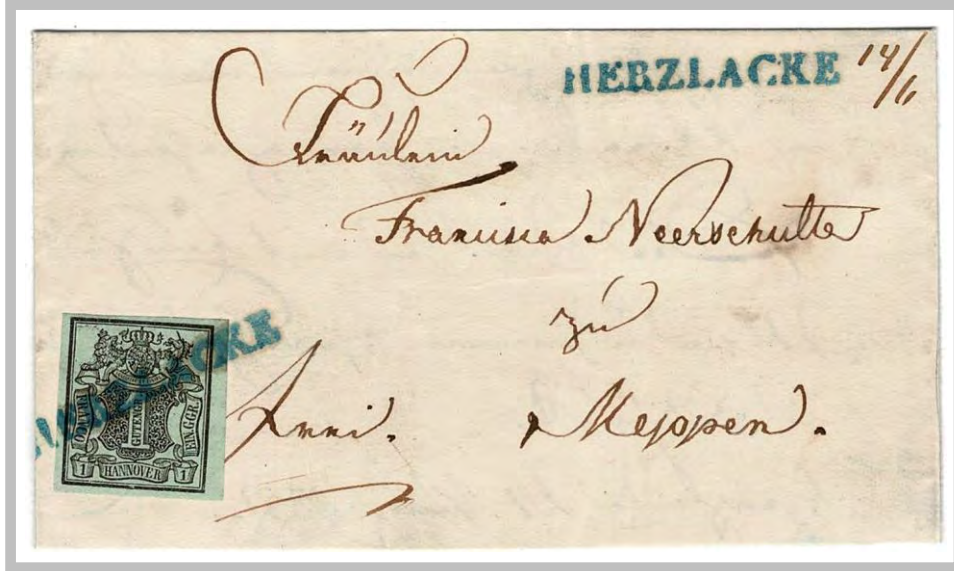 HERZLACKE 14/6
Fräulein
Francisca Neerschulte
zu
frei. Meppen.
HERZLACKE
FRANCO 1 GUTENGR. EIN GGR.
1 HANNOVER 1